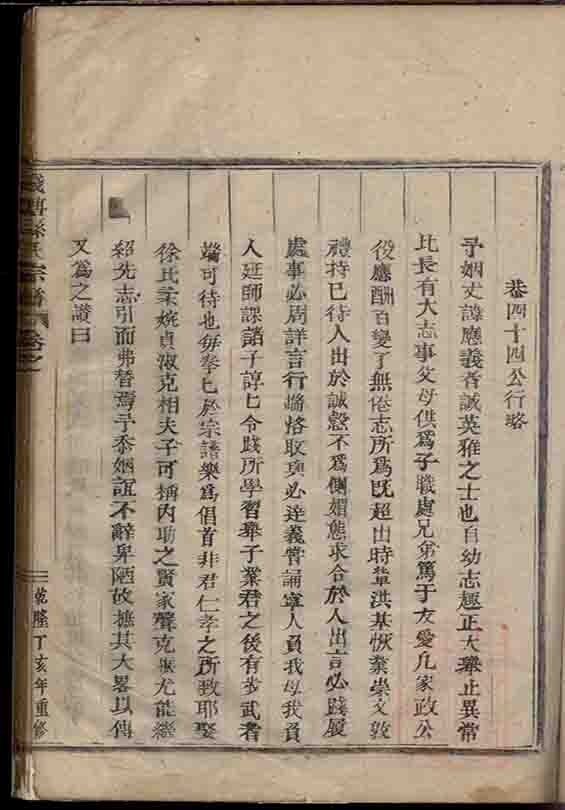 恭四十四公行略
予姻丈諱應義者誠英雅之士也自幼志趣正大舉止異常
比長有大志事父母供爲子職處兄弟篤于友愛凡家政公
役應酬百變了無倦志所爲既超出時輩洪基恢業崇文敦
禮持已待人出於誠慤不爲側媚態求合於人出言必踐履
處事必周詳言行端恪取與必達義嘗誦寧人負我毋我負
人延師課諸子諄匕令踐所學習舉子業君之後有步武者
端可待也毎拳匕於宗譜樂爲倡首非君仁孝之所致耶娶
徐氏柔婉貞淑克相夫子可稱內助之賢家聲克振尤能繼
紹先志引而弗替焉予忝姻誼不辭卑陋故摭其大畧以傳
又爲之讃曰
孫氏宗譜 卷之一
乾隆丁亥年重修